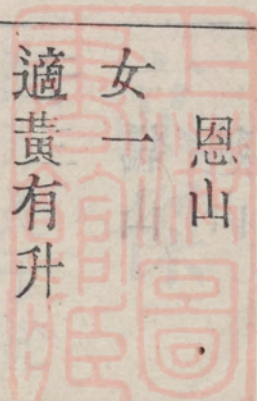 恩山
女一
適黃有升